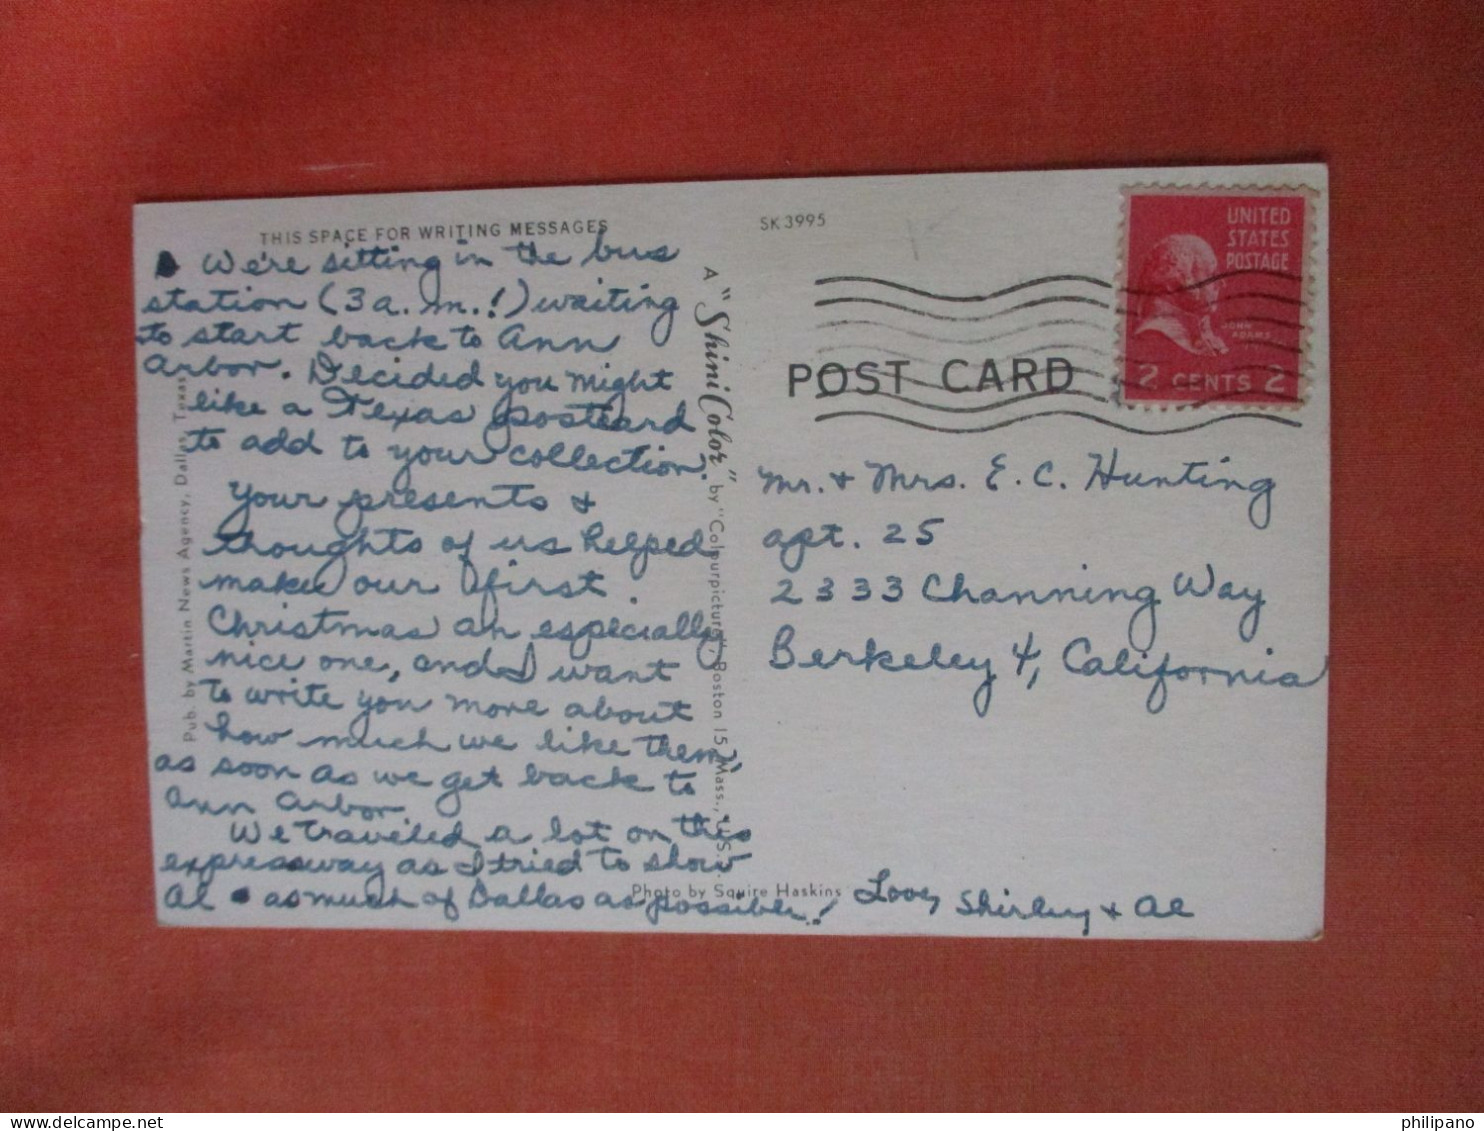 THIS SPACE FOR WRITING MESSAGES
We're sitting in the bus
station (3 a.m.!) waiting
to start back to Ann
Arbor. Decided you might
like a Texas postcard
to add to your collection.
Your presents &
thoughts of us helped
make our first
Christmas an especially
nice one, and I want
to write you more about
how much we like them
as soon as we get back to
Ann Arbor.
We traveled a lot on this
expressway as I tried to show
Al as much of Dallas as possible!
Love, Shirley & Al
Pub. by Martin News Agency, Dallas, Texas
A "ShiniColor" by "Colourpicture", Boston 15, Mass., U.S.
Photo by Squire Haskins
SK3995
POST CARD
UNITED
STATES
POSTAGE
JOHN
ADAMS
2 CENTS 2
Mr. & Mrs. E. C. Hunting
apt. 25
2333 Channing Way
Berkeley 4, California
delcampe.net
philipano